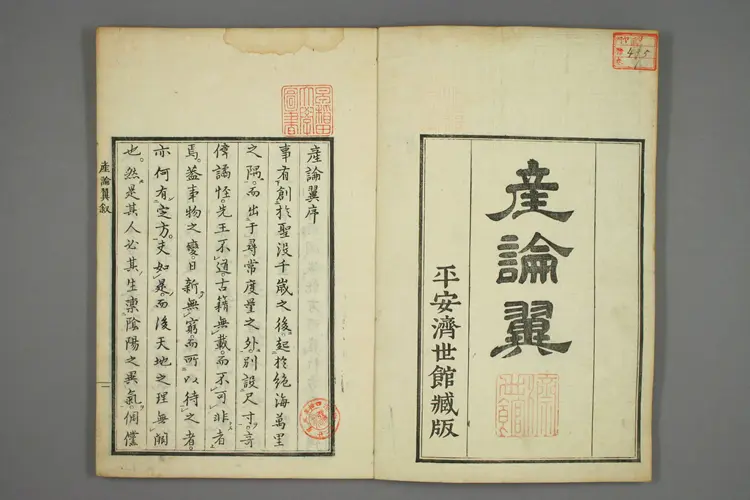 産論翼
平安濟世館藏版
濟世館
産論翼序
事有創於聖没千歲之後。起於絶海萬里
之隅。而出于尋常度量之外。別設尺寸。奇
偉譎怪。先王不道。古籍無載。而不可非者
焉。蓋事物之變。日新無窮。而所以待之者。
亦何有定方。夫如是。而後天地之理無関
也。然是其人必其生禀陰陽之異氣。倜儻
産論翼叙
一